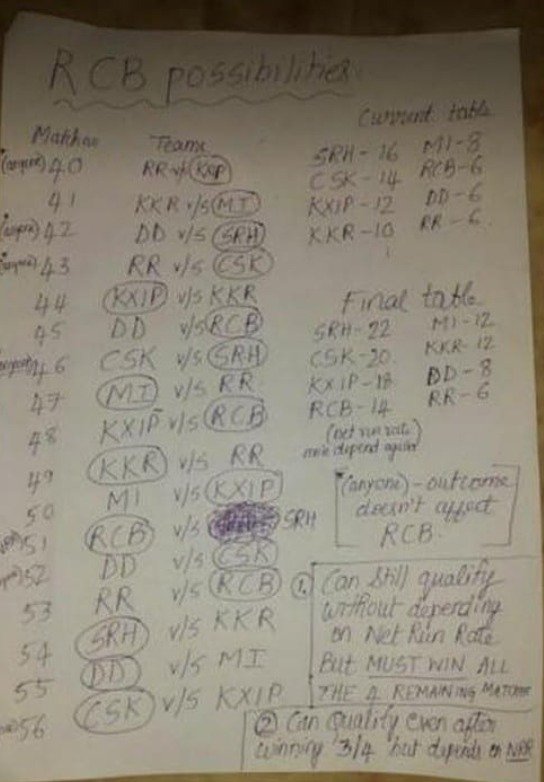 RCB possibilities
Matches Teams
(anyone) 40 RR v/s KXIP
41 KKR v/s MI
(anyone) 42 DD v/s SRH
(anyone) 43 RR v/s CSK
44 KXIP v/s KKR
45 DD v/s RCB
46 CSK v/s SRH
47 MI v/s RR
48 KXIP v/s RCB
49 KKR v/s RR
50 MI v/s KXIP
51 RCB v/s SRH
52 DD v/s CSK
53 RR v/s RCB
54 SRH v/s KKR
55 DD v/s MI
56 CSK v/s KXIP
Current table
SRH - 16 MI - 8
CSK - 14 RCB - 6
KXIP - 12 DD - 6
KKR - 10 RR - 6
Final table
SRH - 22 MI - 12
CSK - 20 KKR - 12
KXIP - 18 DD - 8
RCB - 14 RR - 6
(net run rate)
depend again
*(anyone) - outcome
doesn't affect
RCB.
① Can still qualify
without depending
on Net Run Rate
But MUST WIN ALL
THE 4 REMAINING MATCHES
② Can Qualify even after
winning 3/4 but depends on NRR